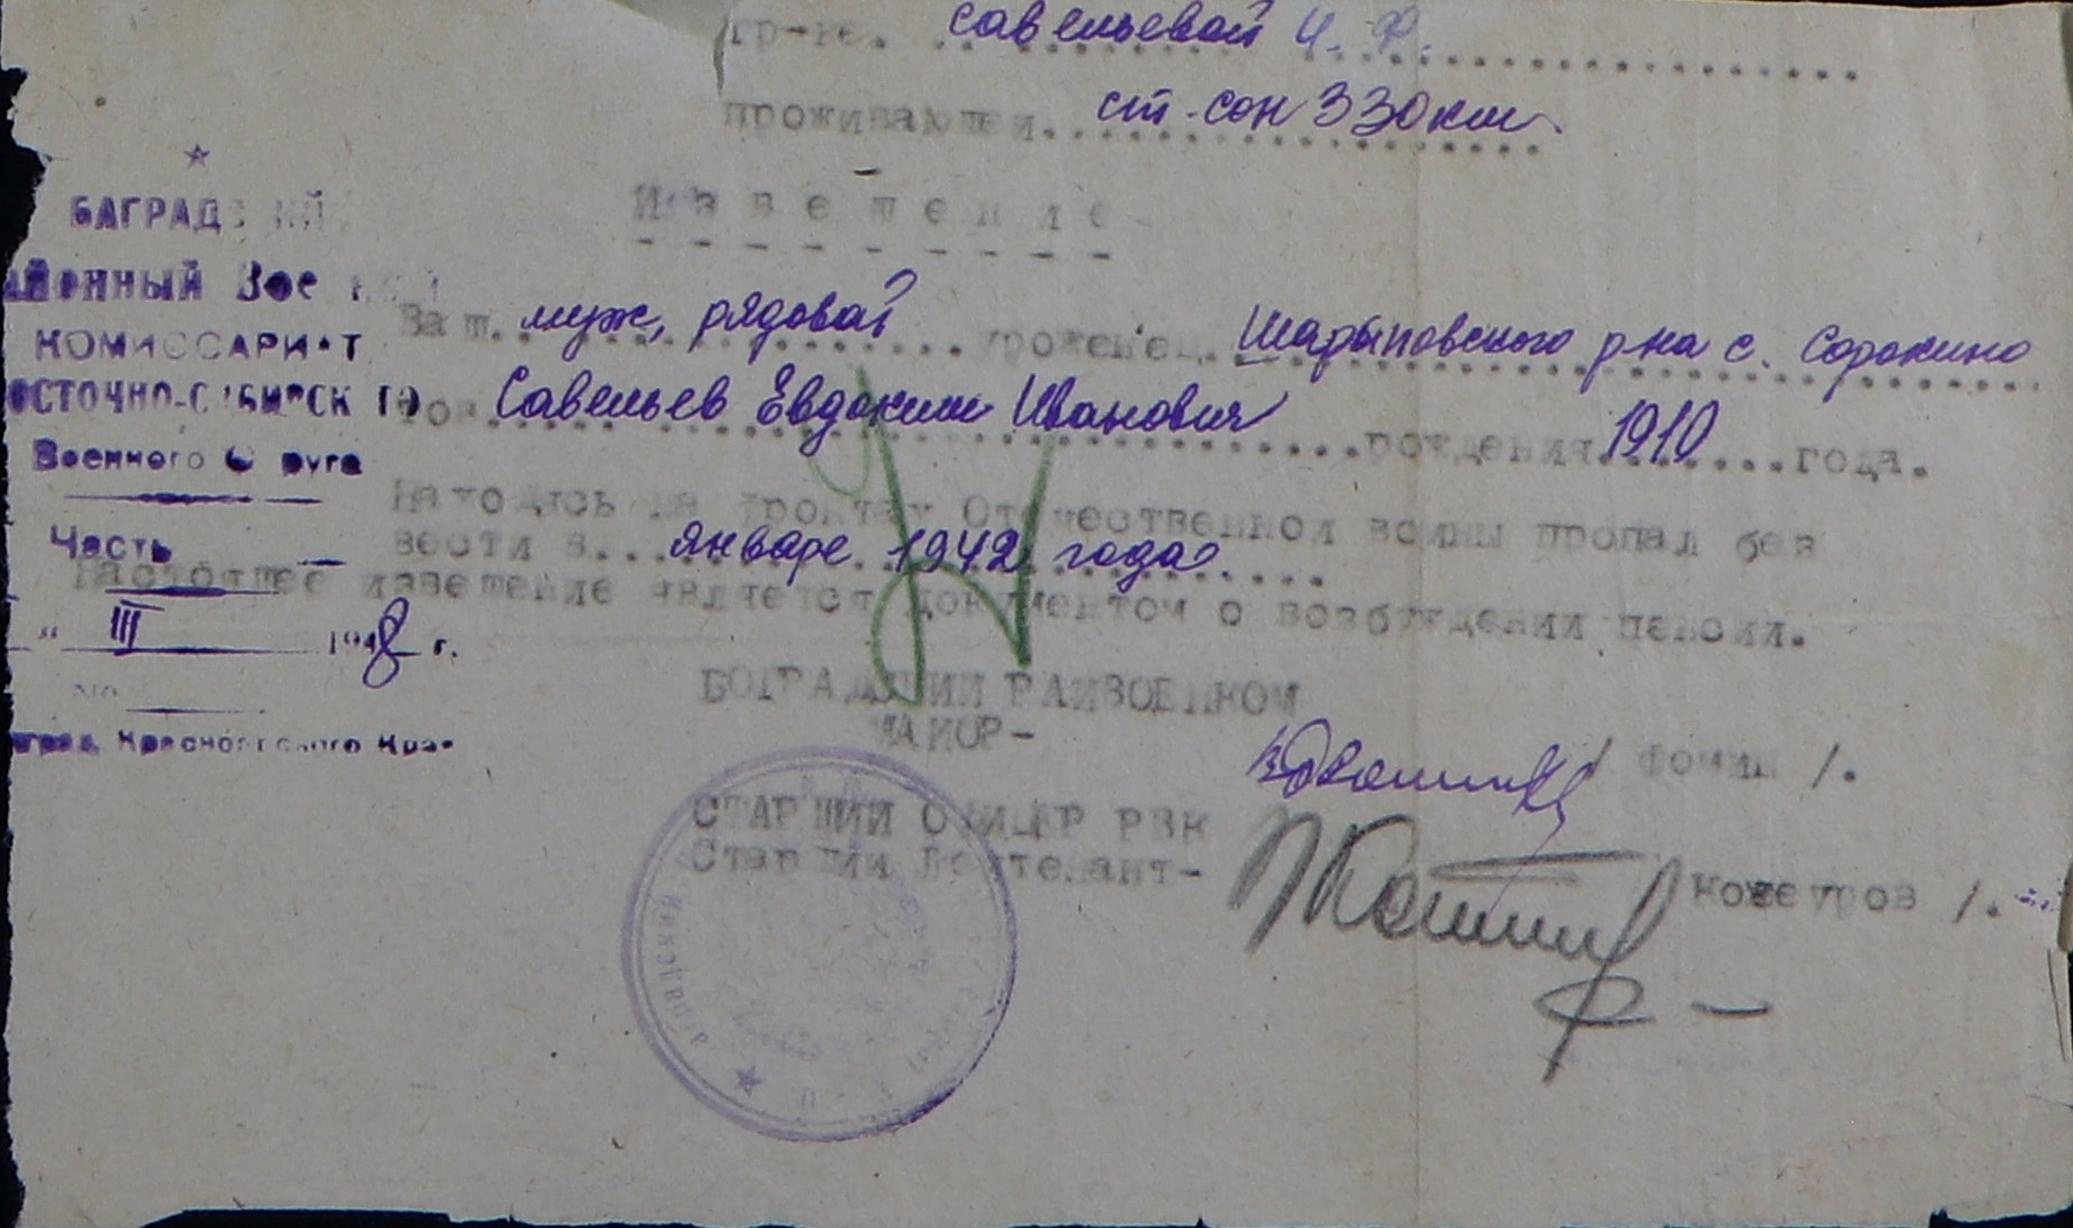 гр-ке. Савельевой И. Ф.
проживающей. ст. Сон 330 км.
Извещение
БАГРАДСКИЙ
РАЙОННЫЙ Военный
КОМИССАРИАТ
ВОСТОЧНО-СИБИРСКОГО
Военного Округа
Часть
" III 1948 г.
№
Красноярского Края
Ваш. муж, рядовой уроженец. Шарыповского р-на с. Сорокино
тов. Савельев Евдоким Иванович рождения 1910 года.
Находясь на фронтах Отечественной войны пропал без
вести в... январе 1942 года.
Настоящее извещение является документом о возбуждении пенсии.
БОГРАДСКИЙ РАЙВОЕНКОМ
МАЙОР- / Фомин /.
СТАРШИЙ ОФИЦЕР РВК
Старший Лейтенант- /.